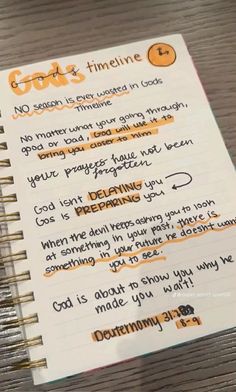 God's timeline
NO season is ever wasted in Gods
Timeline
No matter what your going through,
good or bad, God will use it to
bring you closer to him
your prayers have not been
forgotten
God isnt DELAYING you
Gos is PREPARING you
When the devil keeps asking you to look
at something in your past, there is
something in your future he doesnt want
you to see.
God is about to show you why he
made you wait!
Deuteronomy 31:
8-9